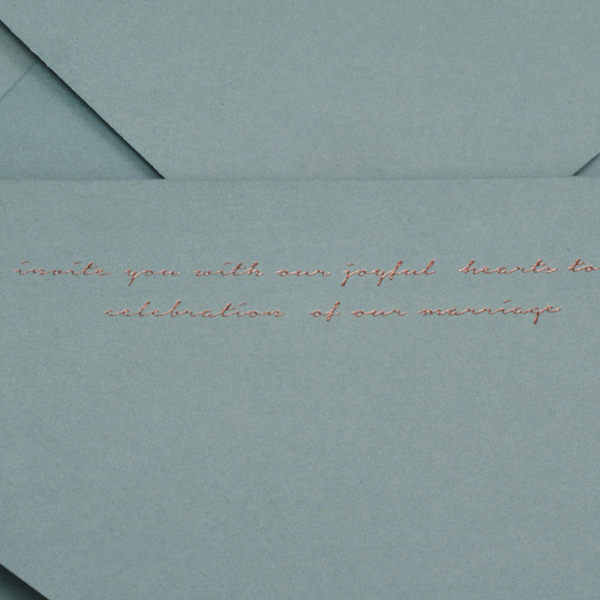 invite you with our joyful hearts to
celebration of our marriage